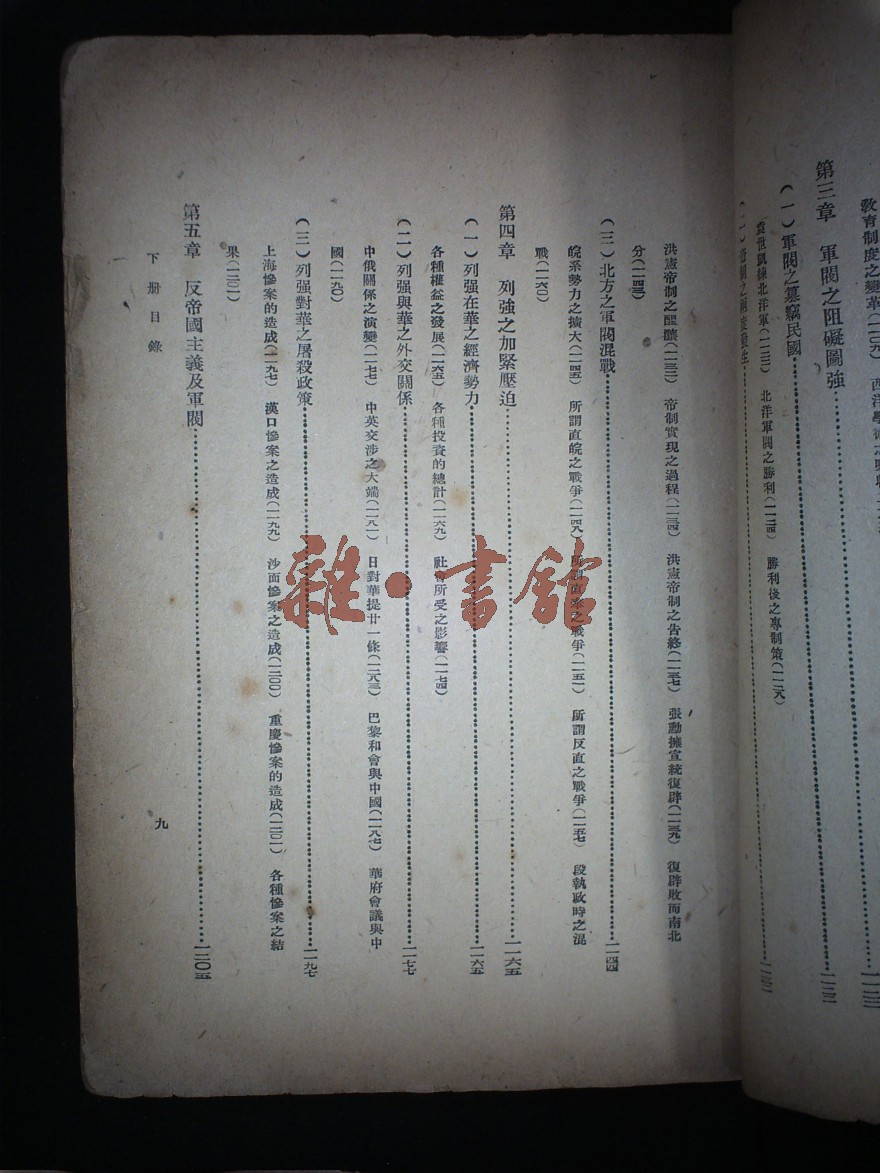 教育制度之變革(一一〇九)
第三章 軍閥之阻礙圖強
(一)軍閥之纂竊民國
袁世凱練北洋軍(一一二三) 北洋軍閥之勝利(一一二四) 勝利後之專制策(一一二八)
洪憲帝制之醞釀(一一三三) 帝制實現之過程(一一三四) 洪憲帝制之告終(一一三七) 張勳擁宣統復辟(一一三九) 復辟敗而南北
分(一一四三)
(三)北方之軍閥混戰……一一四四
皖系勢力之擴大(一一四五) 所謂直皖之戰爭(一一四九) 所謂直奉之戰爭(一一五一) 所謂反直之戰爭(一一五七) 段執政時之混
戰(一一六〇)
第四章 列強之加緊壓迫……一一六五
(一)列强在華之經濟勢力……一一六五
各種權益之發展(一一六五) 各種投資的總計(一一六九) 社會所受之影響(一一七四)
(二)列强與華之外交關係……一一七七
中俄關係之演變(一一七七) 中英交涉之大端(一一八一) 日對華提廿一條(一一八三) 巴黎和會與中國(一一八七) 華府會議與中
國(一一九〇)
(三)列强對華之屠殺政策……一一九七
上海慘案的造成(一一九七) 漢口慘案之造成(一一九九) 沙面慘案之造成(一二〇〇) 重慶慘案的造成(一二〇一) 各種慘案之結
果(一二〇二)
第五章 反帝國主義及軍閥……一二〇五
下册目錄
九
雜·書館